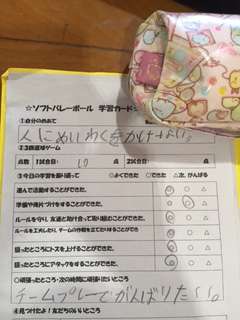 ☆ソフトバレーボール 学習カード☆
①自分のめあて
人にめいわくをかけない。
②3回返球ゲーム
点数 1試合目: 10 点 2試合目: 点
③今日の学習を振り返って ◎よくできた ○できた △次、がんばる
進んで運動することができた。 ◎ ○ △
準備や後片づけをすることができた。 ◎ ○ △
ルールを守り、友達と助け合って取り組むことができた。 ◎ ○ △
ルールを工夫したり、チームの作戦を立てたりすることができた。 ◎ ○ △
狙ったところにトスを上げることができた。 ◎ ○ △
狙ったところにアタックをすることができた。 ◎ ○ △
○頑張ったところ・次の時間に頑張りたいところ
チームプレーでがんばりたい。
④見つけたよ!友だちのいい所!